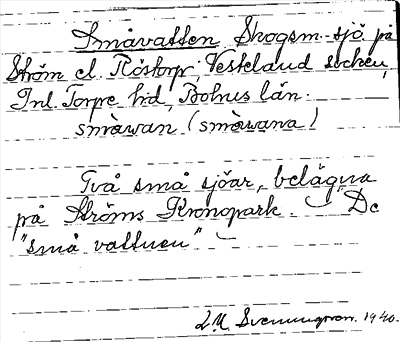 Småvatten Skogsm. sjö på
Ström el. Röstorp, Veskeland socken,
Inl. Torpe hd, Bohus län.
småwan (småwana)
Två små sjöar, belägna
på Ströms Kronopark. De
"små vattnen"
L.M. Svenungsson. 1940.